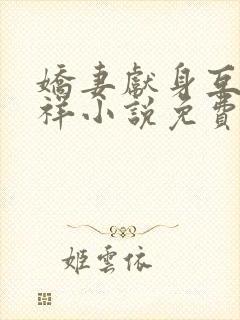 嬌妻獻身互
祥小說免費
姬雲依